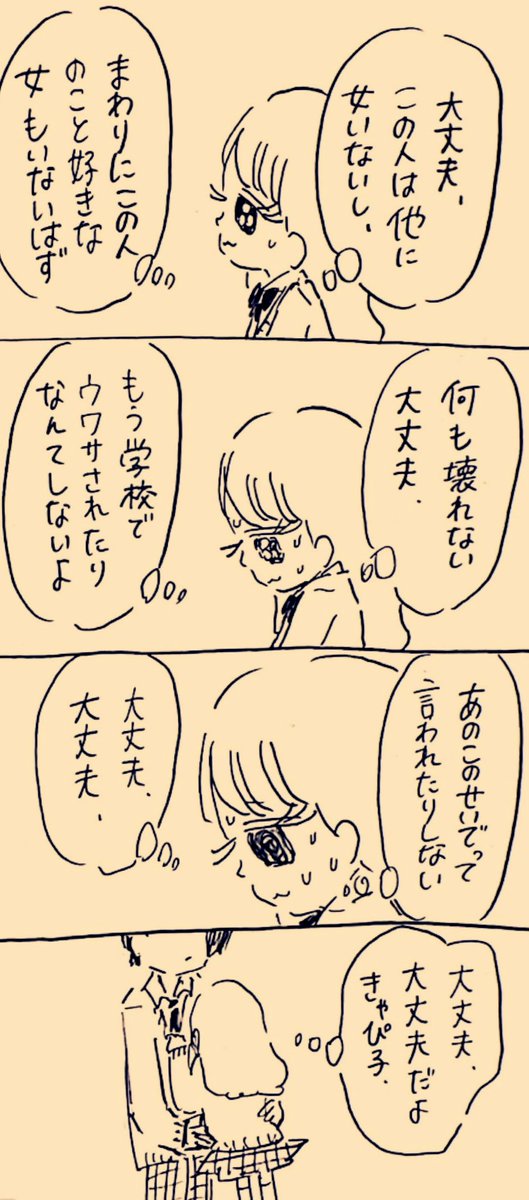 大丈夫、
この人は他に
女いないし、
まわりにこの人
のこと好きな
女もいないはず
何も壊れない
大丈夫、
もう学校で
ウワサされたり
なんてしないよ
あのこのせいでって
言われたりしない
大丈夫、
大丈夫、
大丈夫、
大丈夫だよ
きゃぴ子、